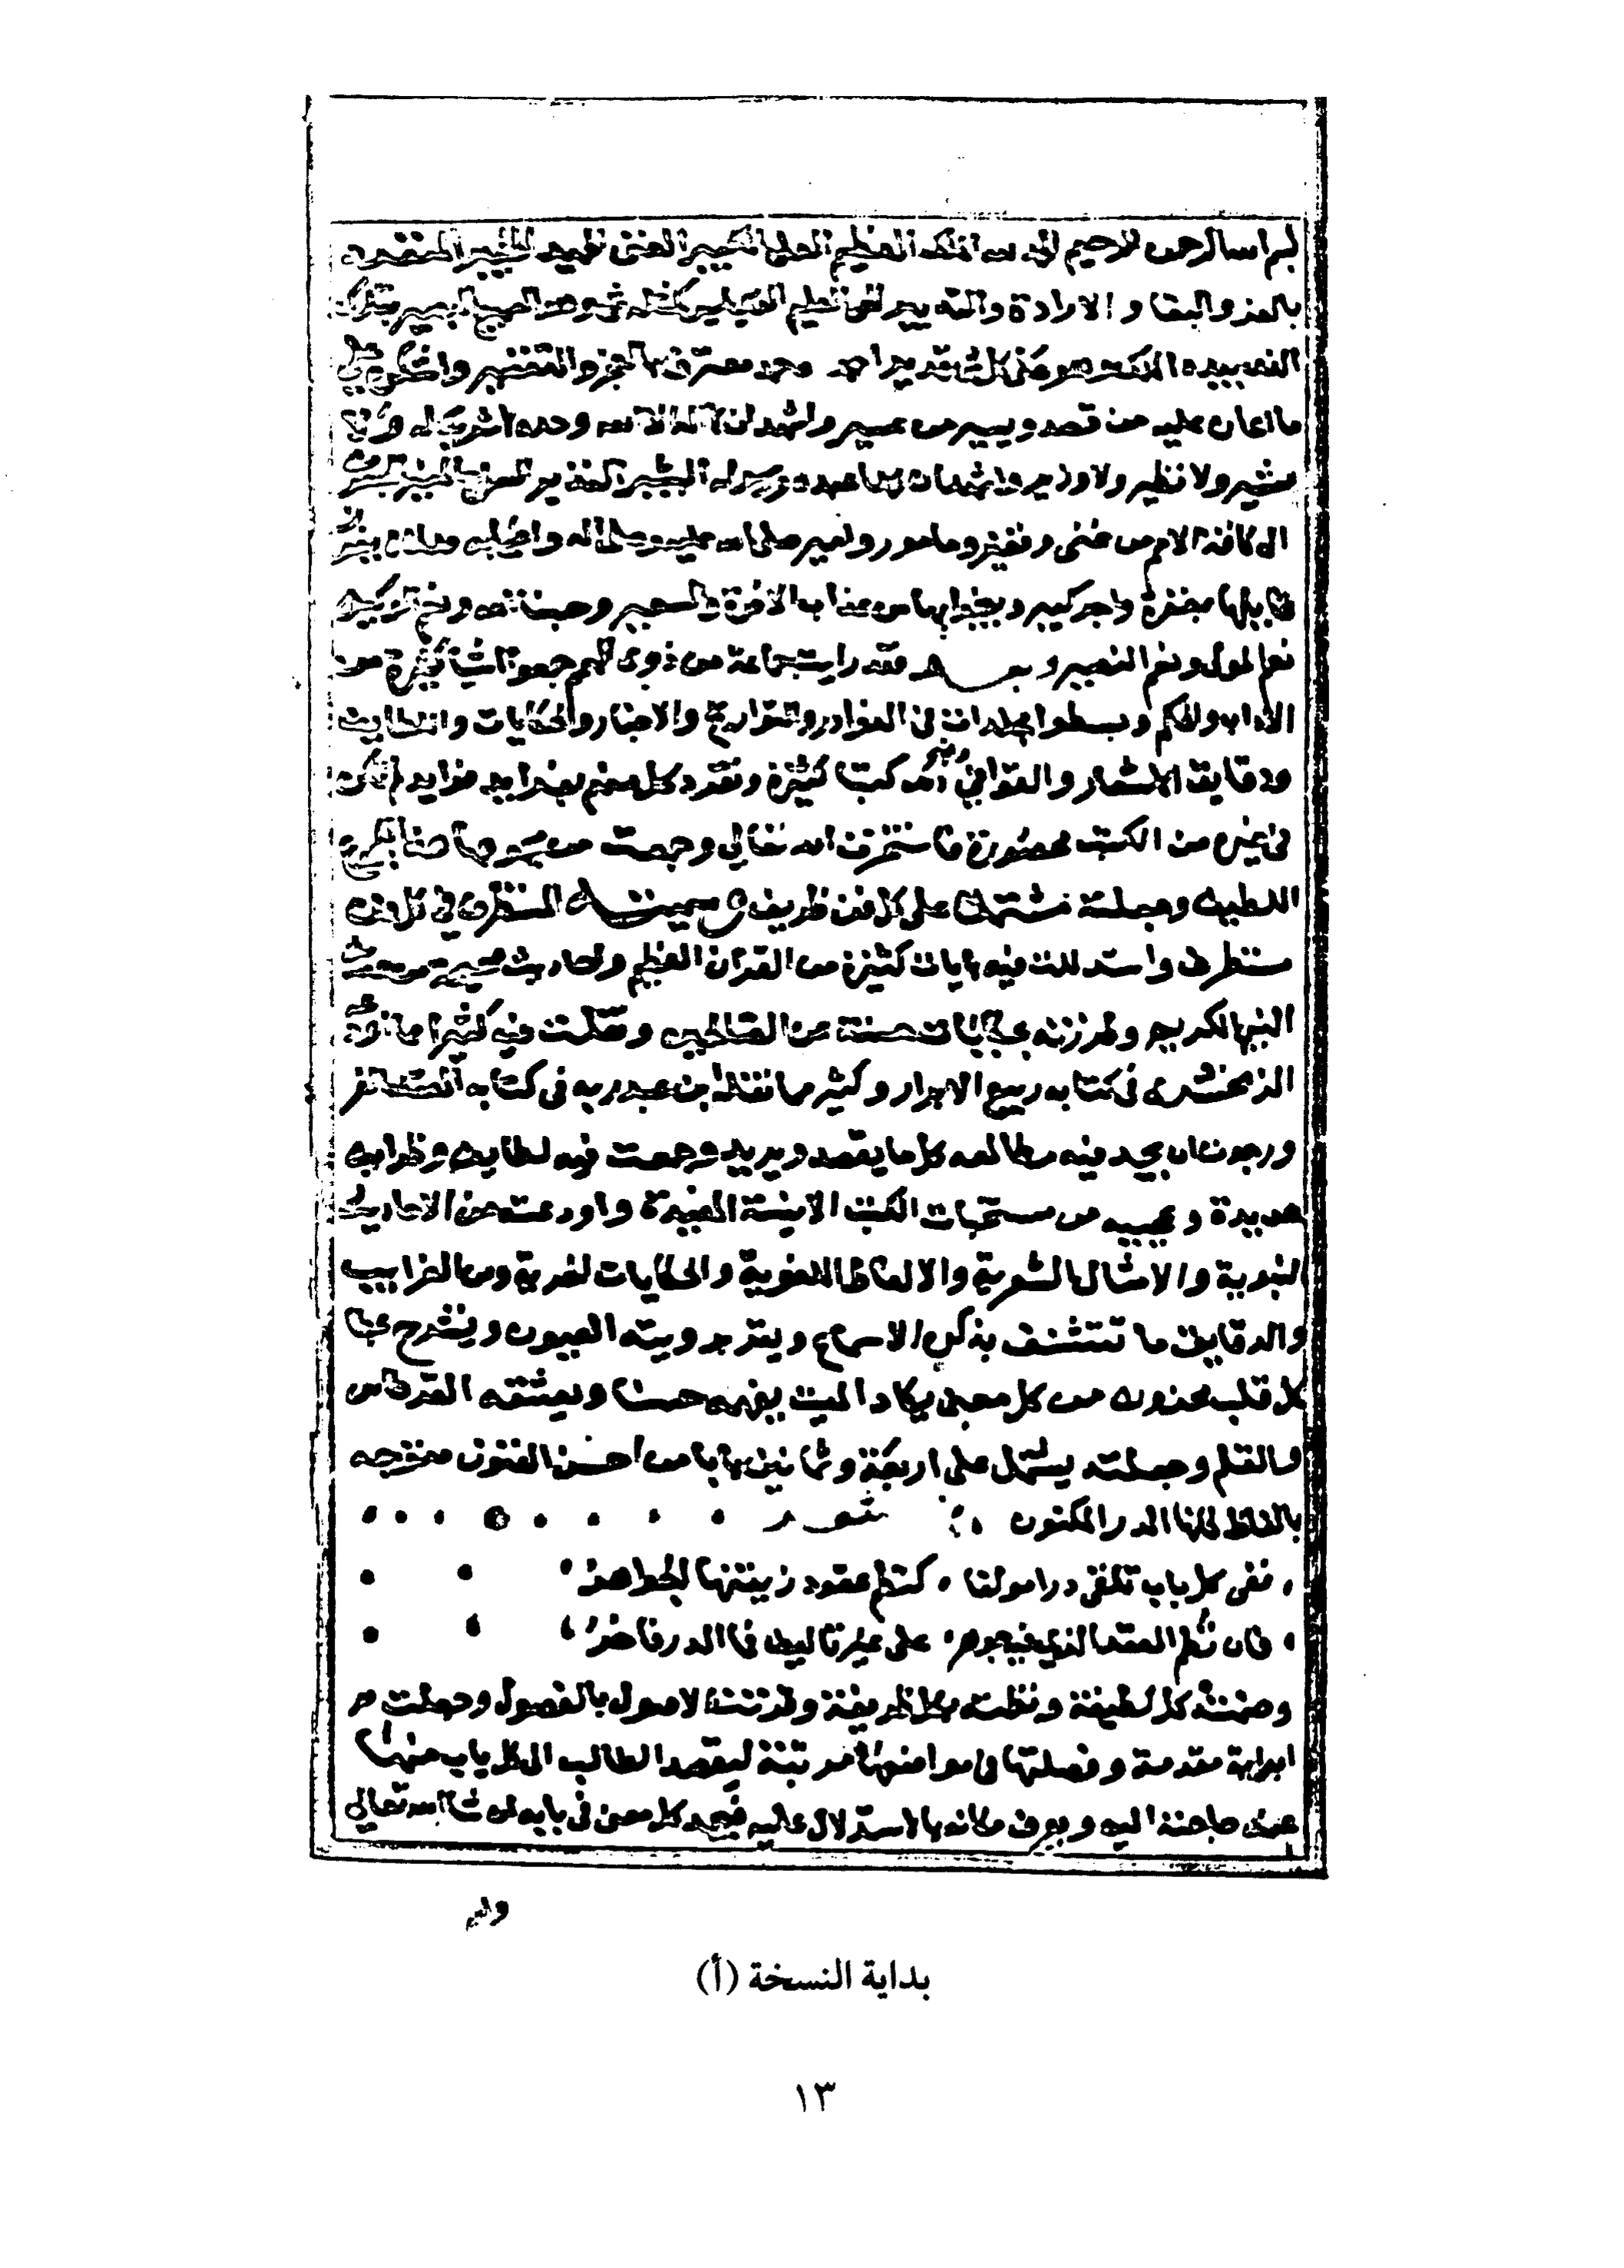 بسم الله الرحمن الرحيم الحمد لله الملك العظيم العلي الكبير الغني اللطيف الخبير المنفرد
بالعز والبقا والارادة والتدبير الحي العليم الذي ليس كمثله شي وهو السميع البصير تبارك
الذي بيده الملك وهو على كل شي قدير احمده حمد معترف بالعجز والتقصير واشكره على
ما اعان عليه من قصد ويسير من عسير واشهد ان لا اله الا الله وحده لا شريك له ولا
مشير ولا نظير ولا وزير واشهد ان محمدا عبده ورسوله البشير النذير السراج المنير المبعوث
الى كافة الامم من غنى وفقير ومامور وامير صلى الله عليه وعلى اله واصحابه صلاة يفوز
قايلها بمغفرة واجر كبير وينجوا بها من عذاب الاخرة والسعير وحسبنا الله ونعم الوكيل
نعم المولى ونعم النصير وبعد فقد رايت جماعة من ذوى الهمم جمعوا اشيا كثيرة من
الاداب والحكم وبسطوا مجلدات في النوادر والتواريخ والاخبار والحكايات واللطايف
ودقايق الاشعار والقوافي كتبا كثيرة وتفرد كل منهم بغرايب فوايد لم تكن
في غيره من الكتب محصورة فاستخرت الله تعالى وجمعت من مجموعها هذا المجموع
اللطيف وجعلته مشتملا على كل فن ظريف وسميته المستطرف في كل فن
مستظرف واستدللت فيه بايات كثيرة من القران العظيم واحاديث صحيحة من حديث
النبي الكريم وطرزته بحكايات حسنة عن الصالحين ونقلت فيه كثيرا مما نقله
الزمخشرى في كتابه ربيع الابرار وكثير مما نقله ابن عبد ربه في كتابه
ورجوت ان يجد فيه مطالعه كل ما يقصد ويريد وجمعت فيه لطايف وظرايف
عديدة وعجيبه من منتخبات الكتب النفيسة المفيدة واودعته من الاحاديث
النبوية والامثال الشعرية والالفاظ اللغوية والحكايات ومن الغرايب
والدقايق ما تتشنف بذكره الاسماع ويقر برويته العيون وينشرح
كل قلب محزون من كل معنى يكاد الميت يفهمه حسنا ويعشقه القرطاس
والقلم وجعلته يشتمل على اربعة وثمانين بابا من احسن الفنون متوجه
بالفاظ كانها الدر المكنون شعر
ففي كل باب تلقى درا مولفا كنظم عقود زينتها الجواهر
فان نظم العقد الذي فيه جوهر على غير تاليف فما الدر فاخر
وضمنته كل لطيفة ونظمته بكل ظريفة وقرنت الاصول بالفصول وجعلت
ابوابه مقدمة وفصلتها في مواضعها مرتبة ليقصد الطالب الى كل باب منها
عند حاجته اليه ويعرف مكانه بالاستدلال عليه فيجد كل معنى في بابه ان شا الله تعالى
بداية النسخة (أ)
١٣